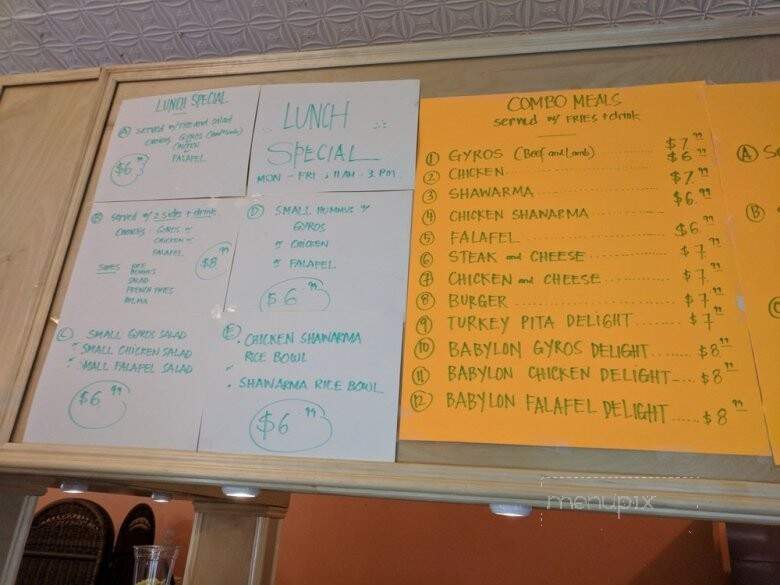 LUNCH SPECIAL
A served w/ rice and salad
CHOICES GYROS (beef & lamb)
CHICKEN
FALAFEL
$6 99
LUNCH
SPECIAL
MON - FRI 11 AM - 3 PM
B served w/ 2 sides + drink
CHOICES GYROS or
CHICKEN or
FALAFEL
$8 99
SIDES RICE
HUMMUS
SALAD
FRENCH FRIES
DOLMA
D SMALL HUMMUS w/
GYROS
or CHICKEN
or FALAFEL
$6 99
C SMALL GYROS SALAD
SMALL CHICKEN SALAD
SMALL FALAFEL SALAD
$6 99
E CHICKEN SHAWARMA
RICE BOWL
SHAWARMA RICE BOWL
$6 99
COMBO MEALS
served w/ FRIES + drink
1 GYROS (Beef and Lamb) $7 99
2 CHICKEN $6 99
3 SHAWARMA $7 99
4 CHICKEN SHAWARMA $6 99
5 FALAFEL $6 99
6 STEAK and CHEESE $7 99
7 CHICKEN and CHEESE $7 99
8 BURGER $7 99
9 TURKEY PITA DELIGHT $7 99
10 BABYLON GYROS DELIGHT $8 99
11 BABYLON CHICKEN DELIGHT $8 99
12 BABYLON FALAFEL DELIGHT $8 99
A
B
menupix